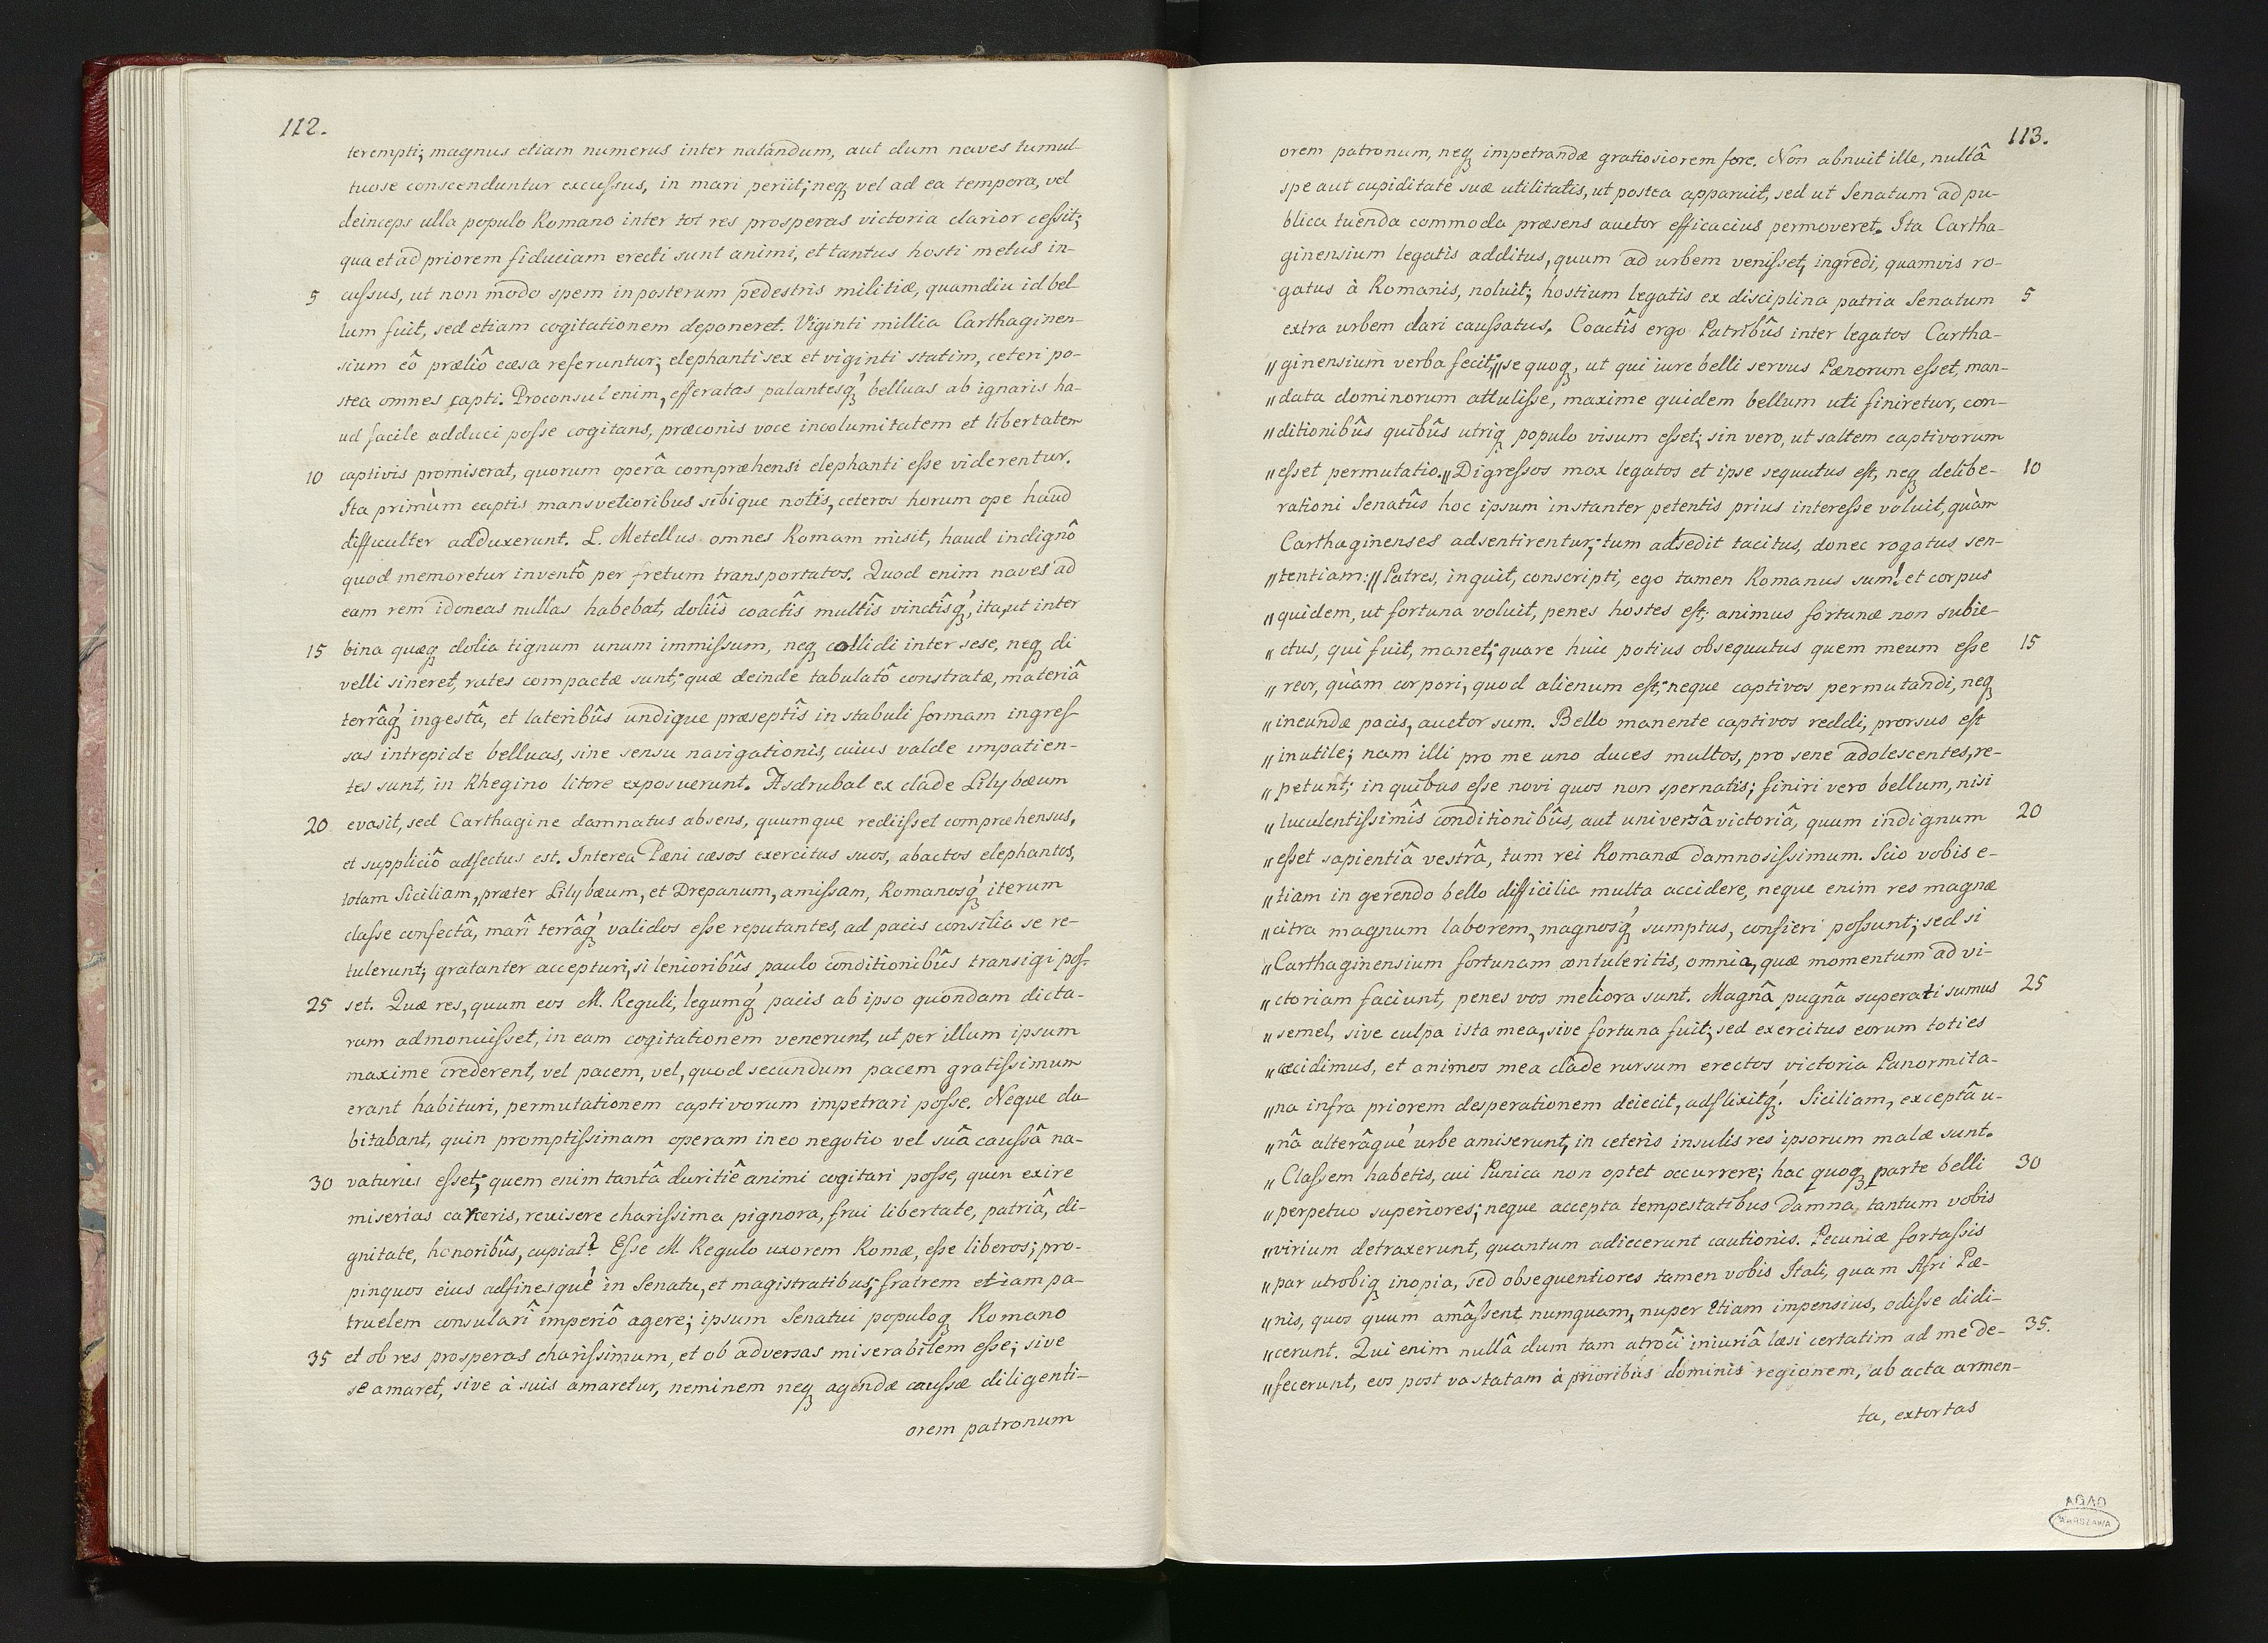 112.
terempti; magnus etiam numerus inter natandum, aut dum naves tumul
tuose conscenduntur excussus, in mari periit; neq₃ vel ad ea tempora, vel
deinceps ulla populo Romano inter tot res prosperas victoria clarior cessit;
qua et ad priorem fiduciam erecti sunt animi, et tantus hosti metus in-
5 cussus, ut non modo spem in posterum pedestris militiæ, quamdiu id bel
lum fuit, sed etiam cogitationem deponeret. Viginti millia Carthaginen-
sium eô præliô cæsa referuntur; elephanti sex et viginti statim, ceteri po-
stea omnes capti. Proconsul enim, efferatas palantesq́₃ belluas ab ignaris ha-
ud facile adduci posse cogitans, præconis voce incolumitatem et libertatem
10 captivis promiserat, quorum operâ compræhensi elephanti esse viderentur.
Ita primùm captis mansvetioribus sibique notis, ceteros horum ope haud
difficulter adduxerunt. L. Metellus omnes Romam misit, haud indignô
quod memoretur inventô per fretum transportatos. Quod enim naves ad
eam rem idoneas nullas habebat, doliîs coactîs multîs vinctîsq́₃, ita, ut inter
15 bina quæq₃ dolia tignum unum immissum, neq₃ collidi inter sese, neq₃ di
velli sineret, rates compactæ sunt; quæ deinde tabulatô constratæ, materiâ
terrâq́₃ ingestâ, et lateribûs undique præseptîs in stabuli formam ingres-
sas intrepide belluas, sine sensu navigationis, cuius valde impatien-
tes sunt, in Rhegino litore exposuerunt. Asdrubal ex clade Lilybæum
20 evasit, sed Carthagine damnatus absens, quumque rediisset compræhensus,
et suppliciô adfectus est. Interea Pæni cæsos exercitus suos, abactos elephantos,
totam Siciliam, præter Lilybæum, et Drepanum, amissam, Romanosq́₃ iterum
classe confectâ, marî terrâq́₃ validos esse reputantes, ad pacis consilia se re-
tulerunt; gratanter accepturi, si lenioribûs paulo conditionibûs transigi pos-
25 set. Quæ res, quum eos M. Reguli, legumq́₃ pacis ab ipso quondam dicta-
rum admonuisset, in eam cogitationem venerunt, ut per illum ipsum
maxime crederent, vel pacem, vel, quod secundum pacem gratissimum
erant habituri, permutationem captivorum impetrari posse. Neque du
bitabant, quin promptissimam operam in eo negotio vel suâ caussâ na-
30 vaturus esset; quem enim tantâ duritiê animi cogitari posse, quin exire
miserias carceris, revisere charissima pignora, frui libertate, patriâ, di-
gnitate, honoribûs, cupiat? Esse M. Regulo uxorem Romæ, esse liberos; pro-
pinquos eius adfinesqué in Senatu, et magistratibus; fratrem etiam pa-
truelem consularî imperiô agere; ipsum Senatui populoq₃ Romano
35 et ob res prosperas charissimum, et ob adversas miserabilem esse; sive
se amaret, sive à suis amaretur, neminem neq₃ agendæ caussæ diligenti-
orem patronum
113.
orem patronum, neq₃ impetrandæ gratiosiorem fore. Non abnuit ille, nullâ
spe aut cupiditate suæ utilitatis, ut postea apparuit, sed ut Senatum ad pu-
blica tuenda commoda præsens auctor efficacius permoveret. Ita Cartha-
ginensium legatis additus, quum ad urbem venisset, ingredi, quamvis ro-
gatus à Romanis, noluit; hostium legatis ex disciplina patria Senatum 5
extra urbem dari caussatus. Coactîs ergo Patribûs inter legatos Cartha-
„ ginensium verba fecit; „ se quoq₃, ut qui iure belli servus Pænorum esset, man-
„ data dominorum attulisse, maxime quidem bellum uti finiretur, con-
„ ditionibûs quibûs utriq₃ populo visum esset; sin vero, ut saltem captivorum
„ esset permutatio. „ Digressos mox legatos et ipse sequutus est, neq₃ delibe- 10
rationi Senatûs hoc ipsum instanter petentis prius interesse voluit, quàm
Carthaginenses adsentirentur; tum adsedit tacitus, donec rogatus sen-
„ tentiam: „ Patres, inquit, conscripti, ego tamen Romanus sum! et corpus
„ quidem, ut fortuna voluit, penes hostes est; animus fortunæ non subie-
„ ctus, qui fuit, manet; quare huic potius obsequutus quem meum esse 15
„ reor, quàm corpori, quod alienum est; neque captivos permutandi, neq₃
„ ineundæ pacis, auctor sum. Bello manente captivos reddi, prorsus est
„ inutile; nam illi pro me uno duces multos, pro sene adolescentes, re-
„ petunt; in quibus esse novi quos non spernatis; finiri vero bellum, nisi
„ luculentissimîs conditionibûs, aut universâ victoriâ, quum indignum 20
„ esset sapientiâ vestrâ, tum rei Romanæ damnosissimum. Scio vobis e-
„ tiam in gerendo bello difficilia multa accidere, neque enim res magnæ
„ citra magnum laborem, magnosq́₃ sumptus, confieri possunt; sed si
„ Carthaginensium fortunam contuleritis, omnia, quæ momentum ad vi-
„ ctoriam faciunt, penes vos meliora sunt. Magnâ pugnâ superati sumus 25
„ semel, sive culpa ista mea, sive fortuna fuit, sed exercitus eorum toties
„ cecidimus, et animos mea clade rursum erectos victoria Panormita-
„ na infra priorem desperationem deiecit, adflixitq́₃. Siciliam, exceptâ u-
„ nâ alterâqué urbe amiserunt, in ceteris insulis res ipsorum malæ sunt.
„ Classem habetis, cui Punica non optet occurrere; hac quoq₃ parte belli 30
„ perpetuo superiores; neque accepta tempestatibus damna, tantum vobis
„ virium detraxerunt, quantum adiecerunt cautionis. Pecuniæ fortassis
„ par utrobiq₃ inopia, sed obsequentiores tamen vobis Itali, quam Afri Pæ-
„ nis, quos quum amâssent numquam, nuper etiam impensius, odisse didi-
„ cerunt. Qui enim nullâ dum tam atrocî iniuriâ læsi certatim ad me de- 35.
„ fecerunt, eos post vastatam à prioribus dominis regionem, ab acta armen-
ta, extortas
AGAD
WARSZAWA